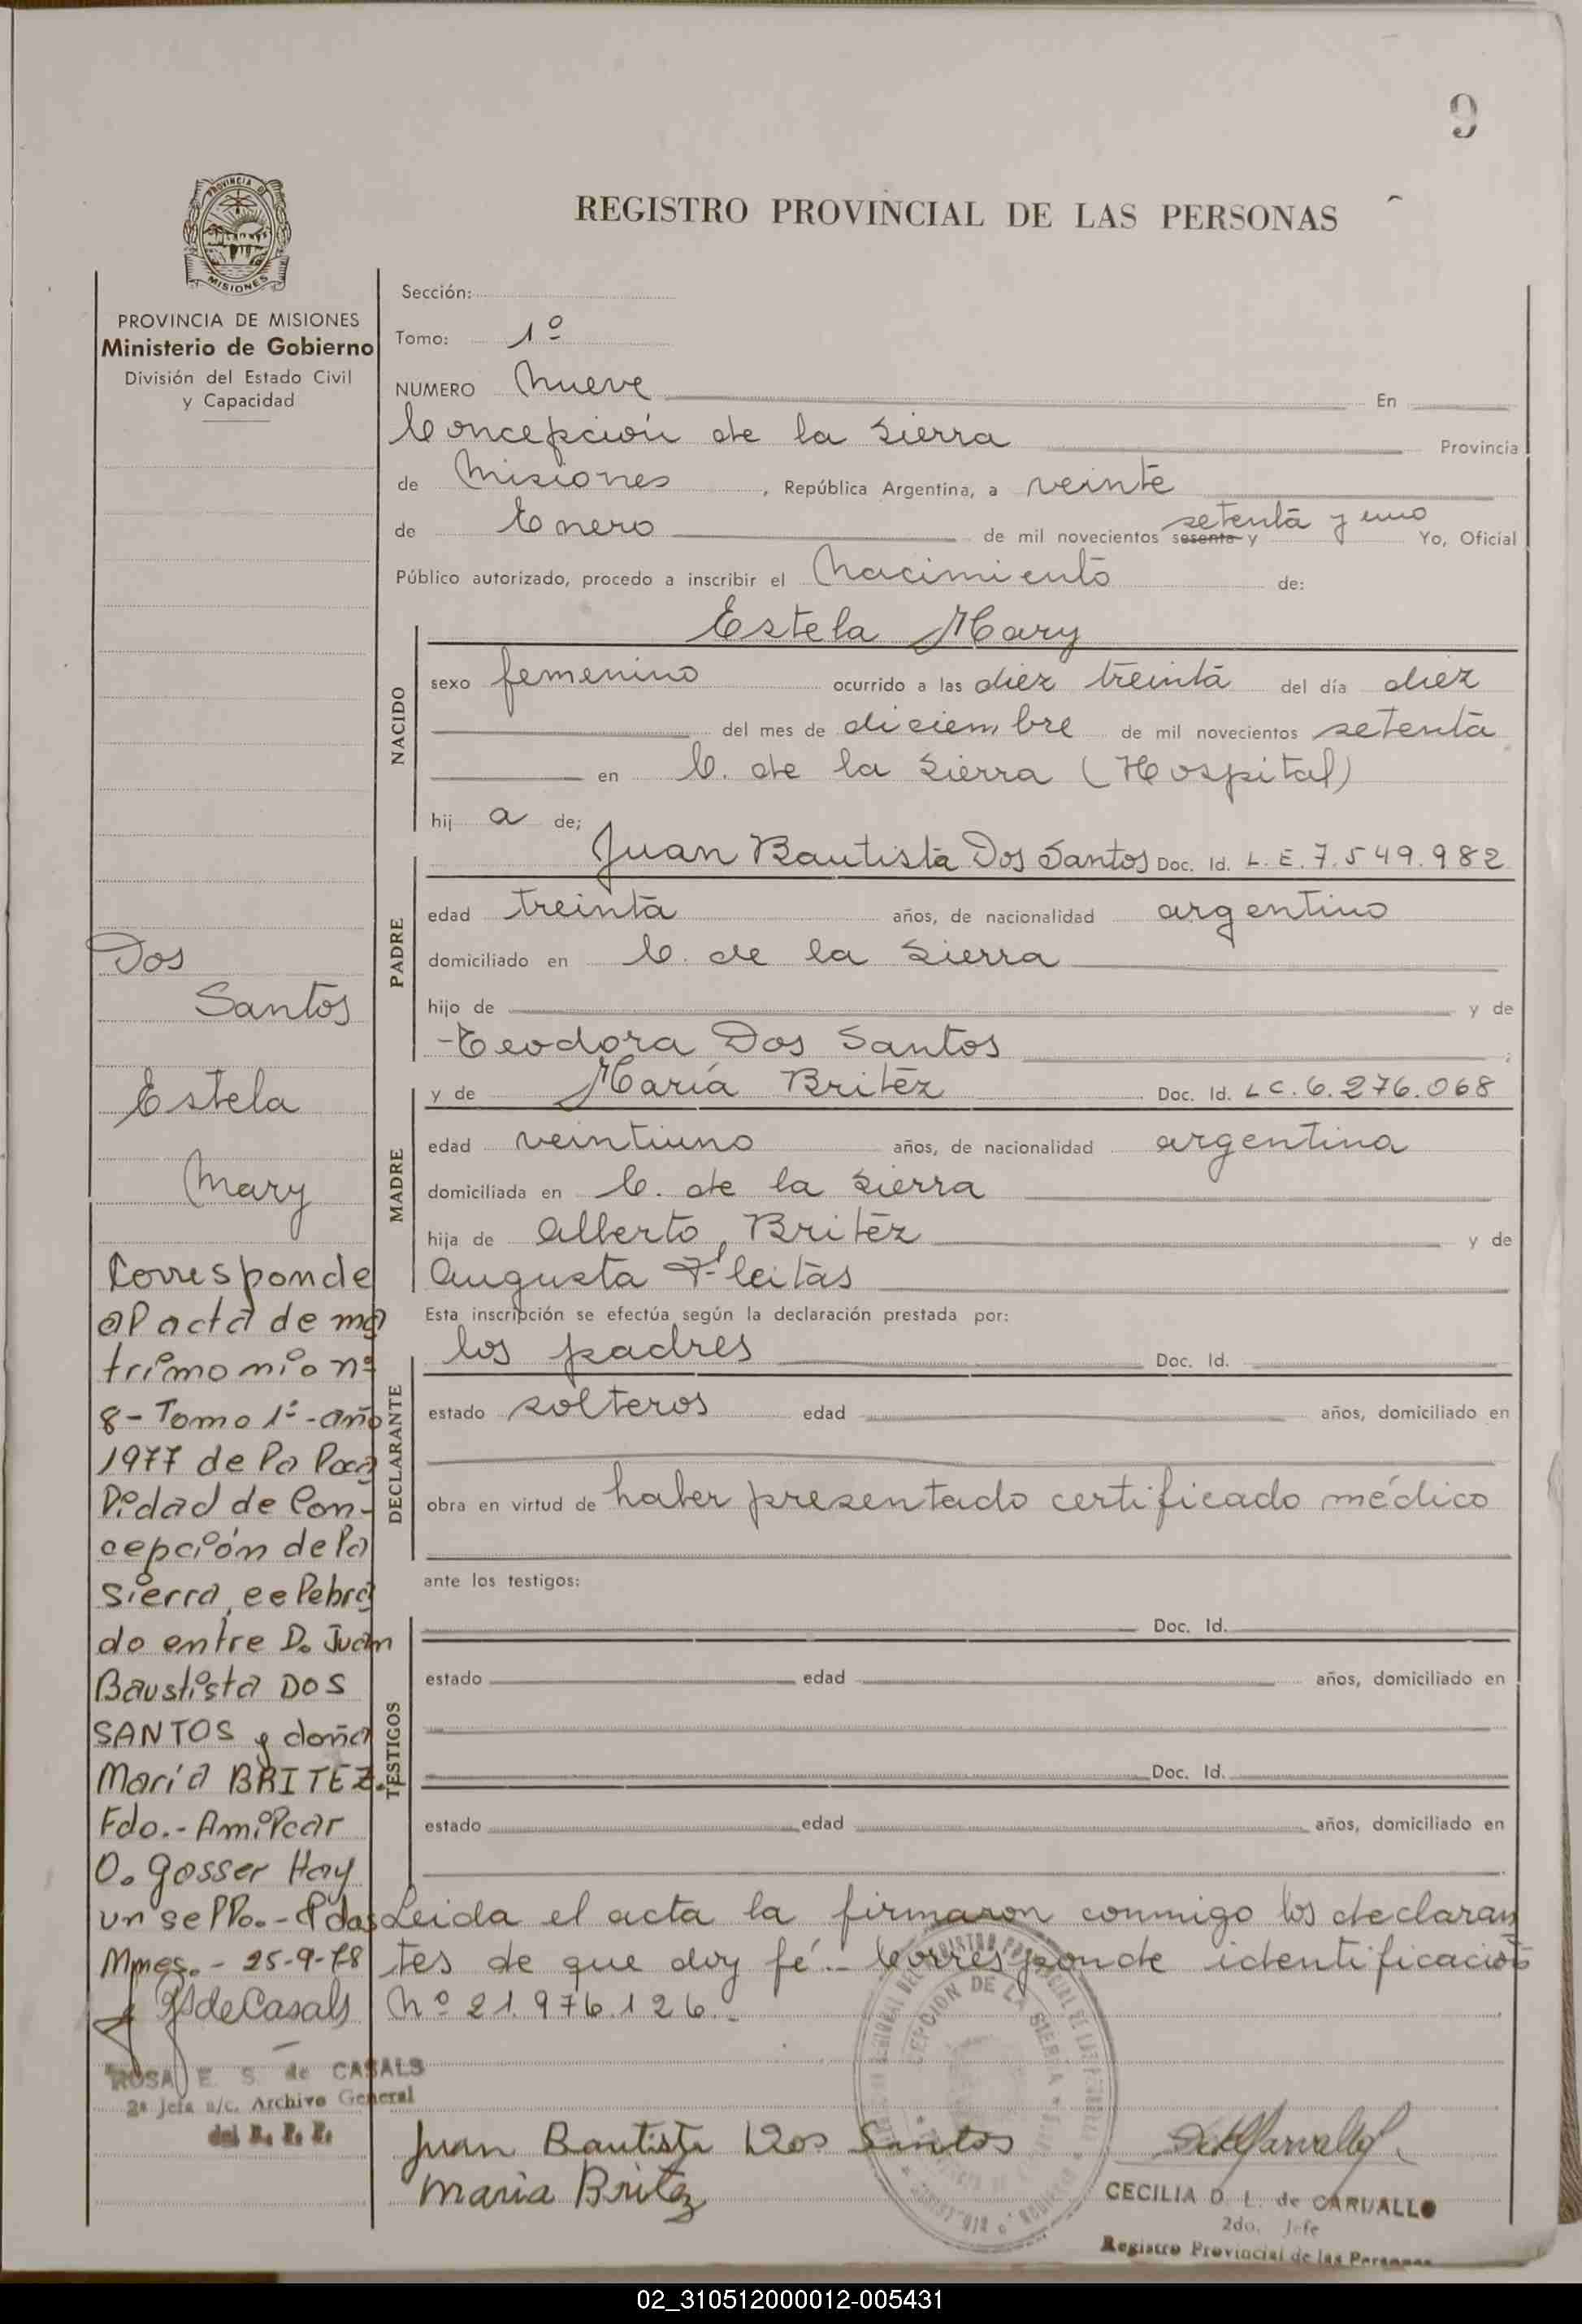 9
PROVINCIA DE
MISIONES
REGISTRO PROVINCIAL DE LAS PERSONAS
PROVINCIA DE MISIONES
Ministerio de Gobierno
División del Estado Civil
y Capacidad
Sección:
Tomo: 1º
NUMERO Nueve En
Concepción de la Sierra Provincia
de Misiones, República Argentina, a veinte
de Enero de mil novecientos sesenta y setenta y uno Yo, Oficial
Público autorizado, procedo a inscribir el Nacimiento de:
Estela Mary
NACIDO
sexo femenino ocurrido a las diez treinta del día diez
del mes de diciembre de mil novecientos setenta
en C. de la Sierra (Hospital)
hij a de;
Juan Bautista Dos Santos Doc. Id. L.E. 7.549.982
PADRE
edad treinta años, de nacionalidad argentino
domiciliado en C. de la Sierra
hijo de y de
Teodora Dos Santos
y de María Britéz Doc. Id. LC. 6.276.068
MADRE
edad veintiuno años, de nacionalidad argentina
domiciliada en C. de la Sierra
hija de Alberto Britéz y de
Augusta Fleitas
Esta inscripción se efectúa según la declaración prestada por:
los padres Doc. Id.
DECLARANTE
estado solteros edad años, domiciliado en
obra en virtud de haber presentado certificado médico
ante los testigos:
Doc. Id.
TESTIGOS
estado edad años, domiciliado en
Doc. Id.
estado edad años, domiciliado en
Leida el acta la firmaron conmigo los declaran
tes de que doy fé.- Corresponde identificación
Nº 21.976.126.-
Juan Bautista Dos Santos
Maria Britez
CECILIA D. L. de CARVALLO
2do. Jefe
Registro Provincial de las Personas
Dos
Santos
Estela
Mary
Corresponde
al acta de ma
trimonio nº
8- Tomo 1º - año
1977 de la loca
lidad de Con-
cepción de la
Sierra, celebra
do entre D. Juan
Baustista DOS
SANTOS y doña
María BRITEZ.
Fdo.- Amilcar
O. Gosser Hay
un sello.- Pdas
Mnes.- 25-9-78
deCasals
ROSA E. S. de CASALS
2ª Jefa a/c. Archivo General
del R. P. P.
02_310512000012-005431